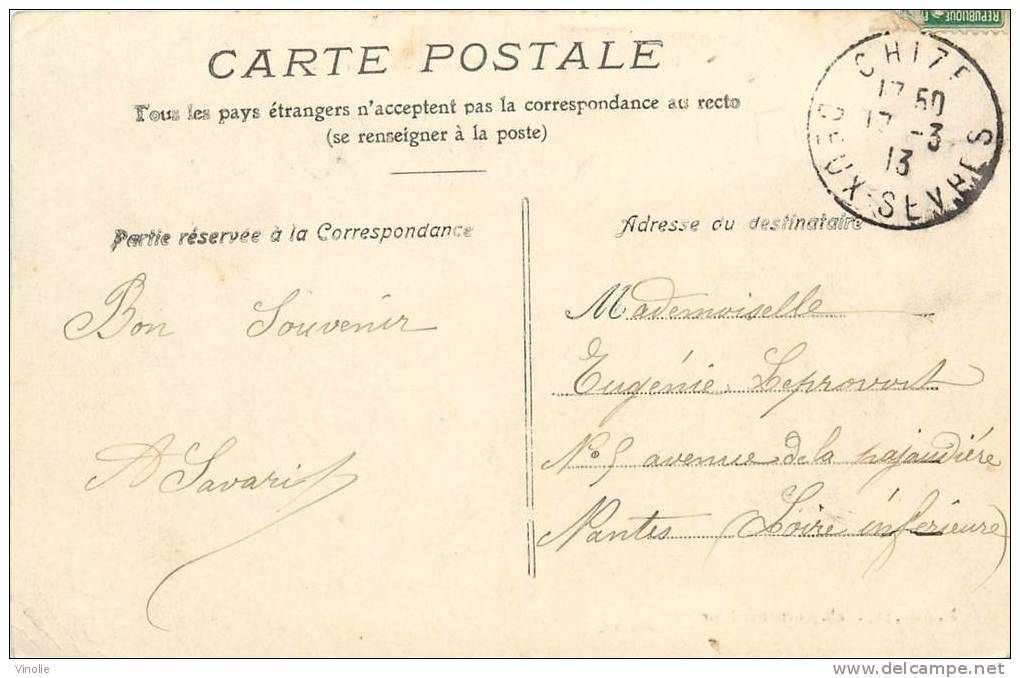 REPUBLIQUE
CARTE POSTALE
Tous les pays étrangers n'acceptent pas la correspondance au recto
(se renseigner à la poste)
CHIZE
17 50
17 -3
13
DEUX-SEVRES
Partie réservée à la Correspondance
Adresse du destinataire
Bon Souvenir
A Savarit
Mademoiselle
Eugénie Leprovost
N° 5 avenue de la pajaudière
Nantes (Loire inférieure)
Vinolie
delcampe.net